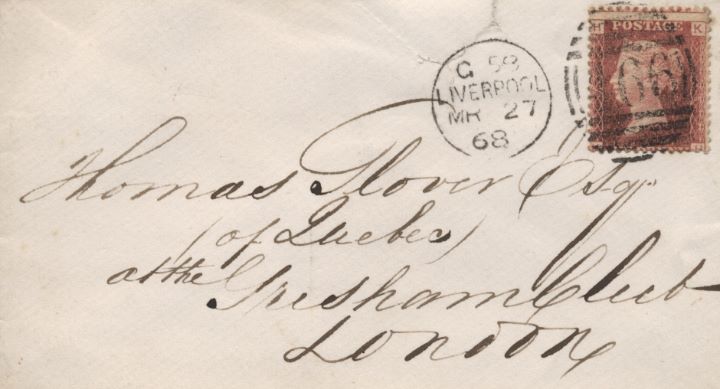 H POSTAGE K
G 58
LIVERPOOL
MR 27
68
66
Thomas Glover Esqr
(of Quebec)
at the
Gresham Club
London